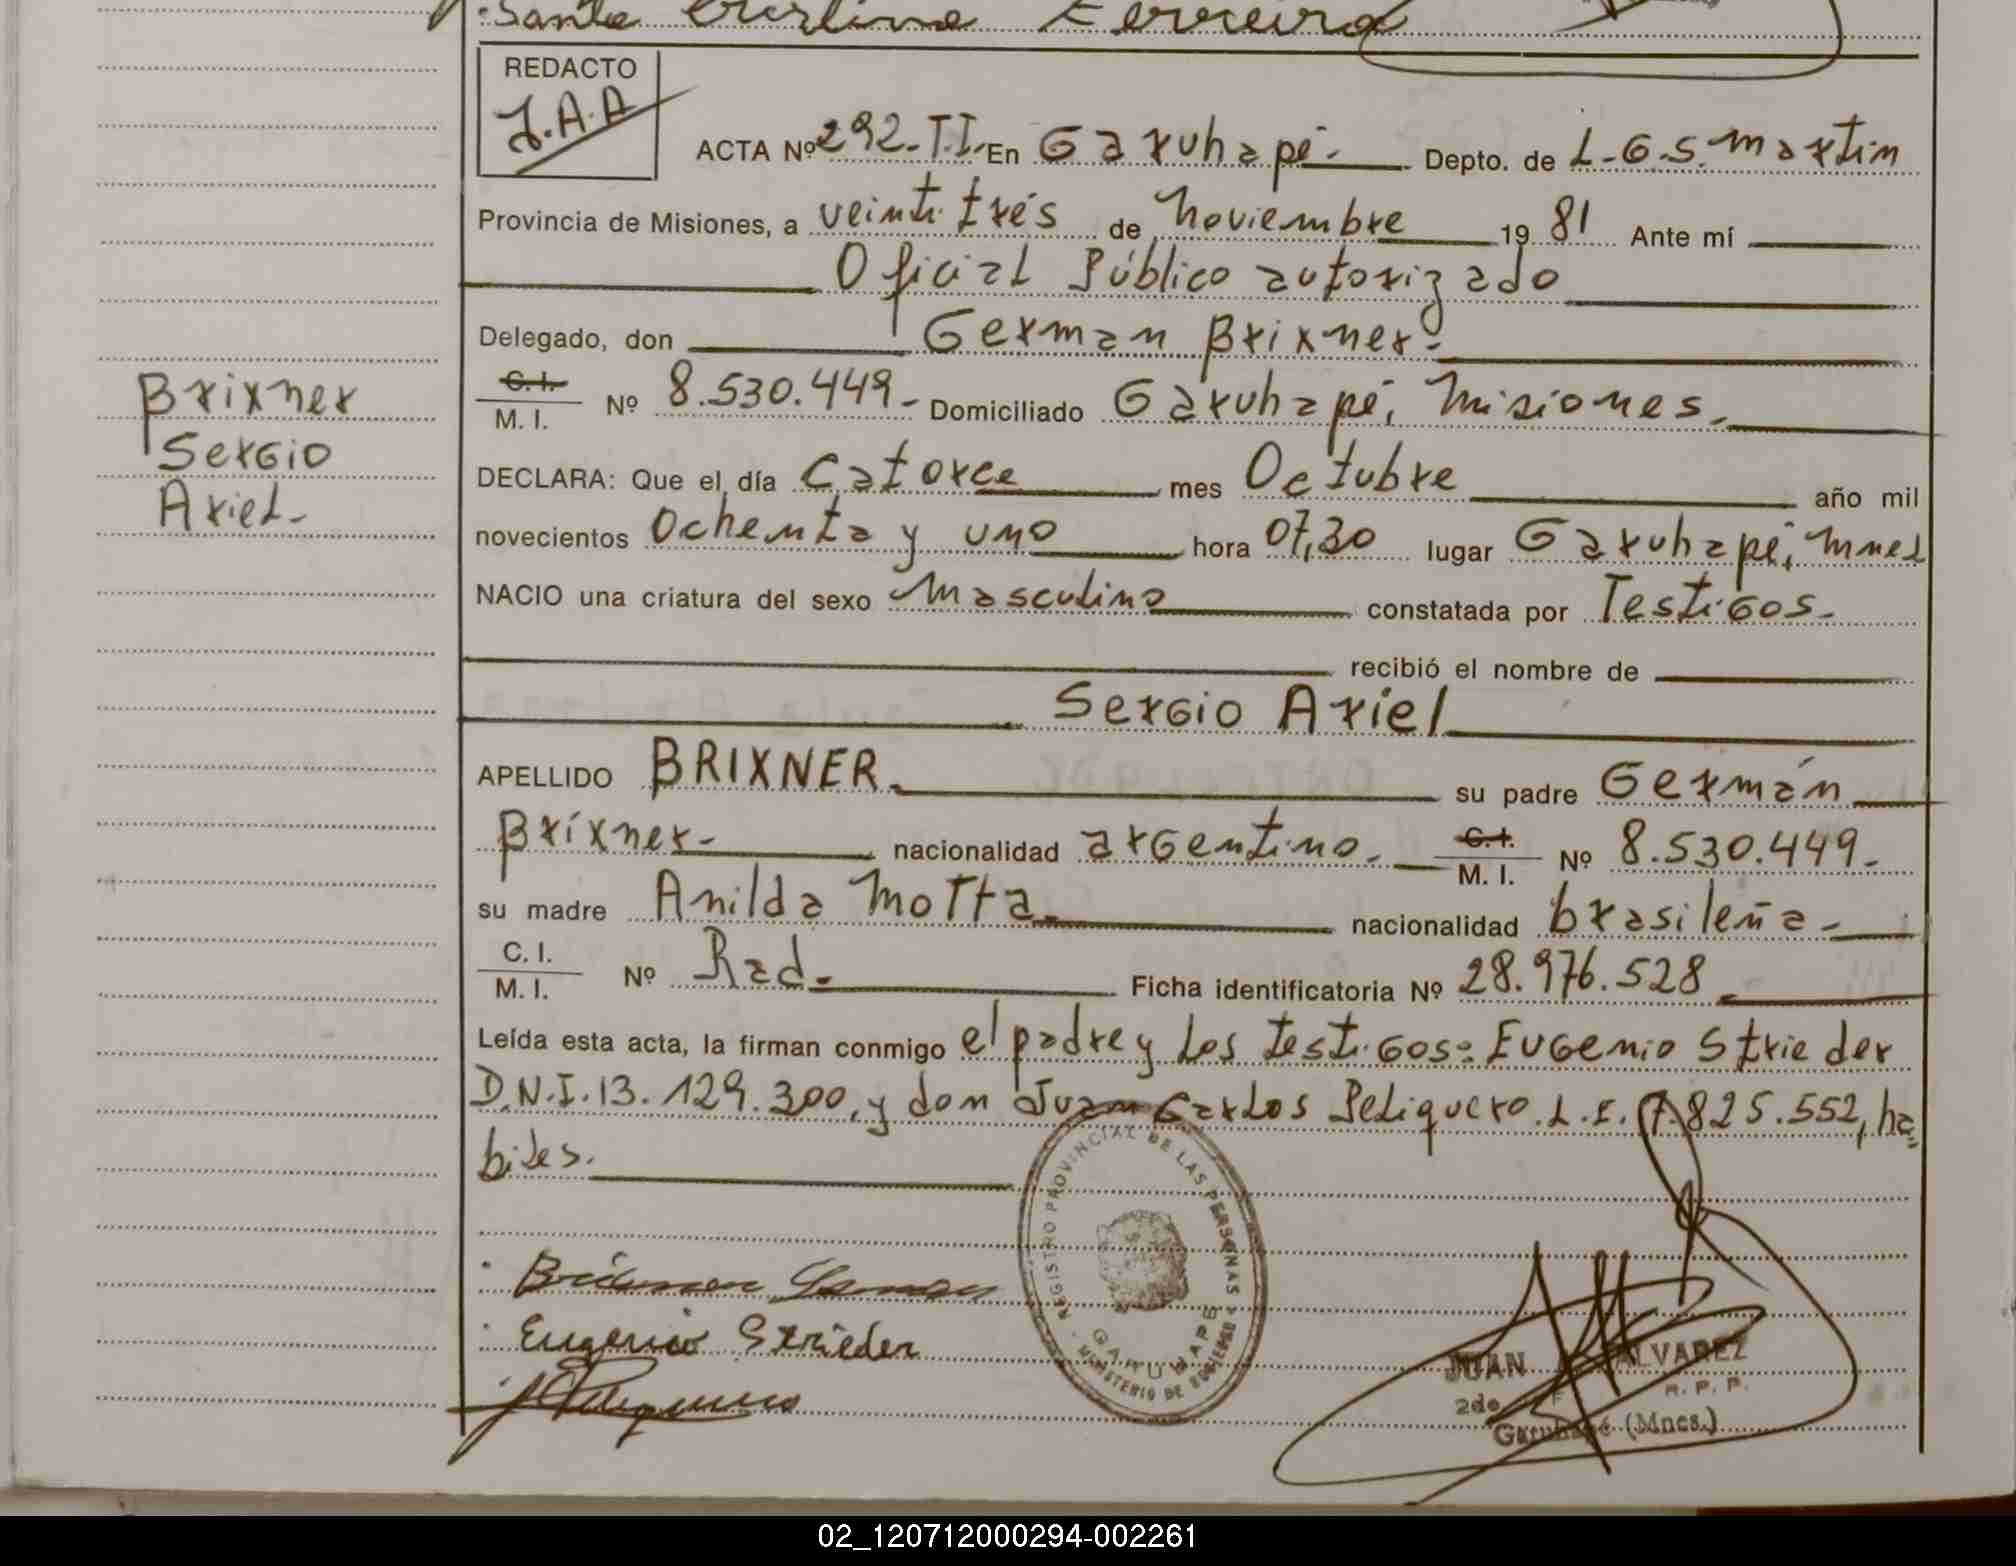 Santa Cristina Ferreira
REDACTO
J.A.A
ACTA Nº 292-T.I. En Garuhapé. Depto. de L.G.S. Martin
Provincia de Misiones, a veintitrés de Noviembre 1981 Ante mí
Oficial Público autorizado
Delegado, don German Brixner.
C.I. M. I. Nº 8.530.449- Domiciliado Garuhapé, Misiones.
Brixner
Sergio
Ariel-
DECLARA: Que el día Catorce mes Octubre año mil
novecientos Ochenta y uno hora 07,30 lugar Garuhapé, Mnes
NACIO una criatura del sexo Masculino constatada por Testigos.
recibió el nombre de
Sergio Ariel
APELLIDO BRIXNER. su padre Germán
Bríxner- nacionalidad argentino. C.I. M. I. Nº 8.530.449-
su madre Anilda Motta nacionalidad brasileña-
C. I. M. I. Nº Rad. Ficha identificatoria Nº 28.976.528
Leída esta acta, la firman conmigo el padre y los testigos: Eugenio Strieder
D.N.I. 13.129.300, y don Juan Carlos Peliquero L.E. 7.825.552, há
biles.
REGISTRO PROVINCIAL DE LAS PERSONAS
GARUHAPE
MINISTERIO DE GOBIERNO
Brixner German
Eugenio Strieder
JUAN ALVAREZ
2do R. P. P.
Garuhapé (Mnes.)
02_120712000294-002261